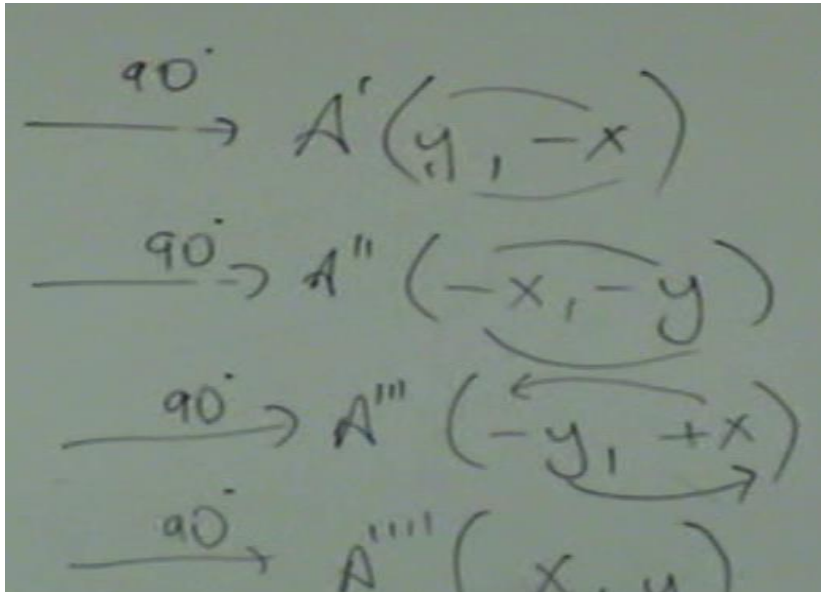 90° → A'(y, -x)
90° → A''(-x, -y)
90° → A'''(-y, +x)
90° → A''''(x, y)